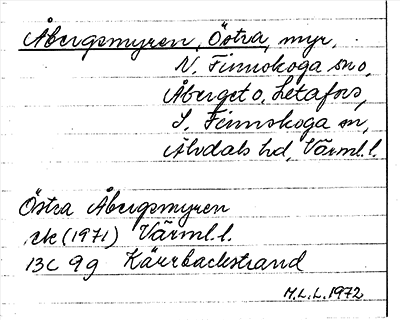 Åbergsmyren, Östra, myr,
N. Finnskoga sn o,
Åberget o, Letafors,
S. Finnskoga sn,
Älvdals hd, Värml. l.
Östra Åbergsmyren
ek (1971) Värml. l.
13C 9g Kärrbackstrand
M.L.L. 1972